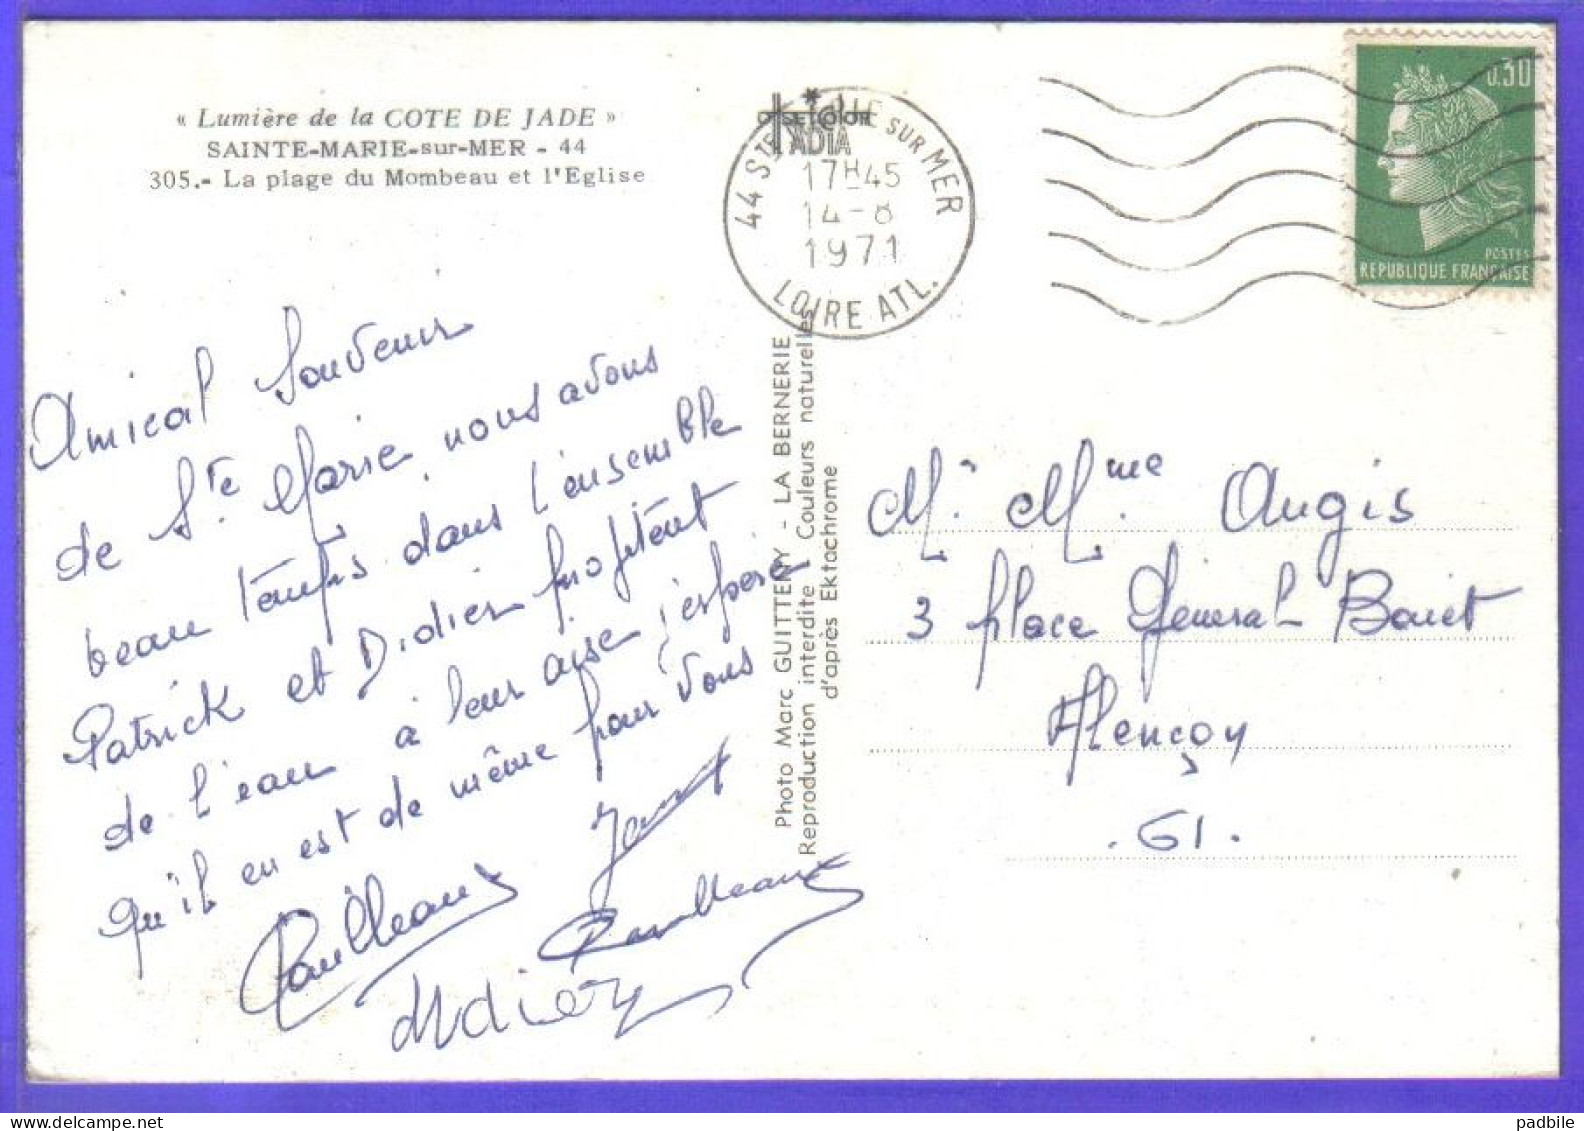 « Lumière de la COTE DE JADE »
SAINTE-MARIE-sur-MER - 44
305.- La plage du Mombeau et l'Eglise
44 STE MARIE SUR MER
17H45
14-8
1971
LOIRE ATL.
0,30
POSTES
REPUBLIQUE FRANÇAISE
Amical Souvenir
de Ste Marie, nous avons
beau temps dans l'ensemble
Patrick et Didier profitent
de l'eau à leur aise, j'espère
qu'il en est de même pour vous
Didier
Photo Marc GUITTENY - LA BERNERIE
Reproduction interdite Couleurs naturelles
d'après Ektachrome
M. Mme Augis
3 place Général Bonet
Alençon
. 61 .
padbile